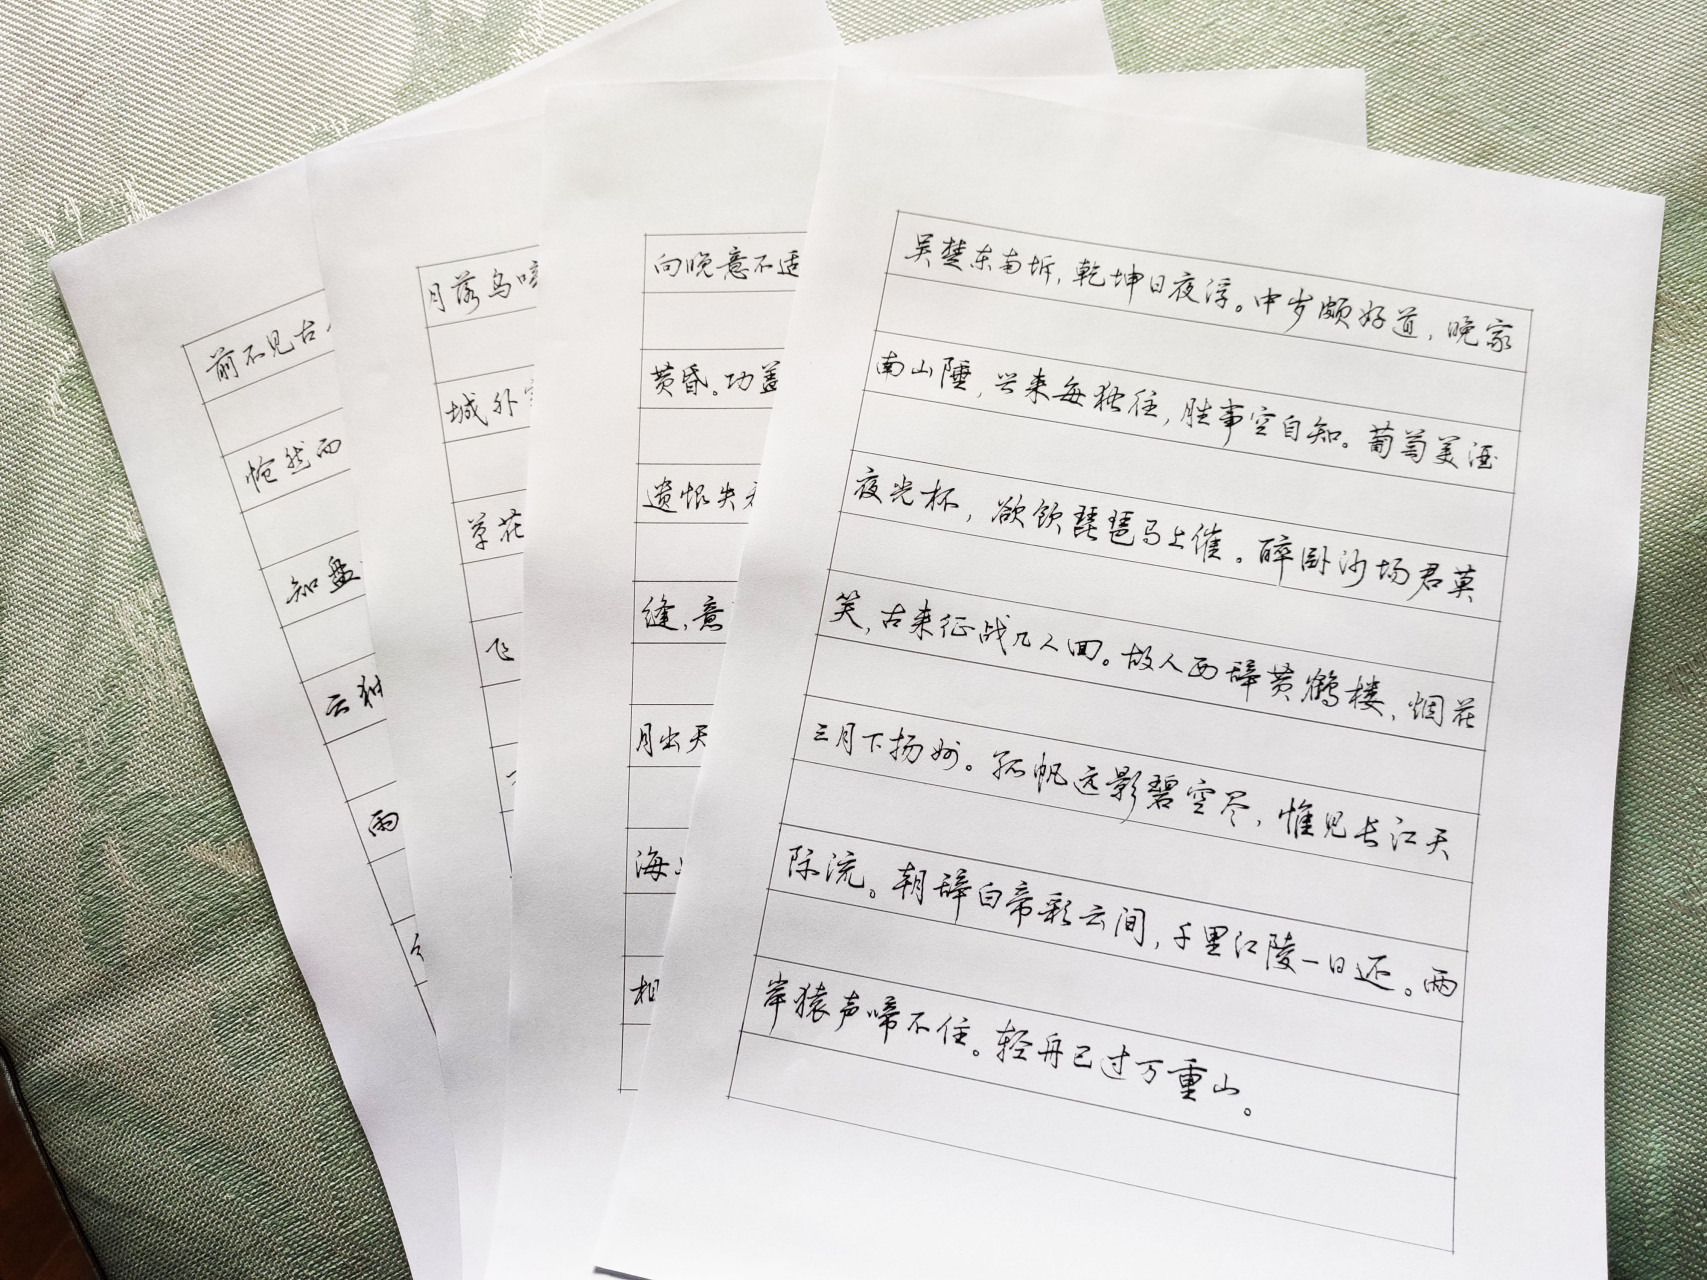 前不见古
怆然而
知盘
云独
雨
月落乌啼
城外
草花
飞
向晚意不适
黄昏。功盖
遗恨失
缝,意
月出天
海
相
吴楚东南坼,乾坤日夜浮。中岁颇好道,晚家
南山陲,兴来每独往,胜事空自知。葡萄美酒
夜光杯,欲饮琵琶马上催。醉卧沙场君莫
笑,古来征战几人回。故人西辞黄鹤楼,烟花
三月下扬州。孤帆远影碧空尽,惟见长江天
际流。朝辞白帝彩云间,千里江陵一日还。两
岸猿声啼不住。轻舟已过万重山。